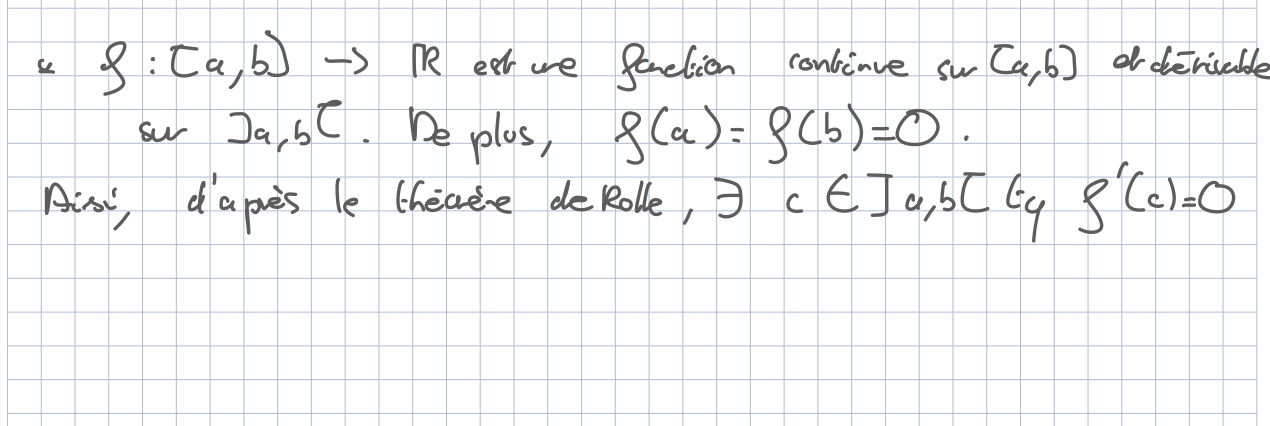 * f : [a,b] → ℝ est une fonction continue sur [a,b] et dérivable
sur ]a,b[. De plus, f(a) = f(b) = 0.
Aisi, d'après le théorème de Rolle, ∃ c ∈ ]a,b[ tq f'(c)=0